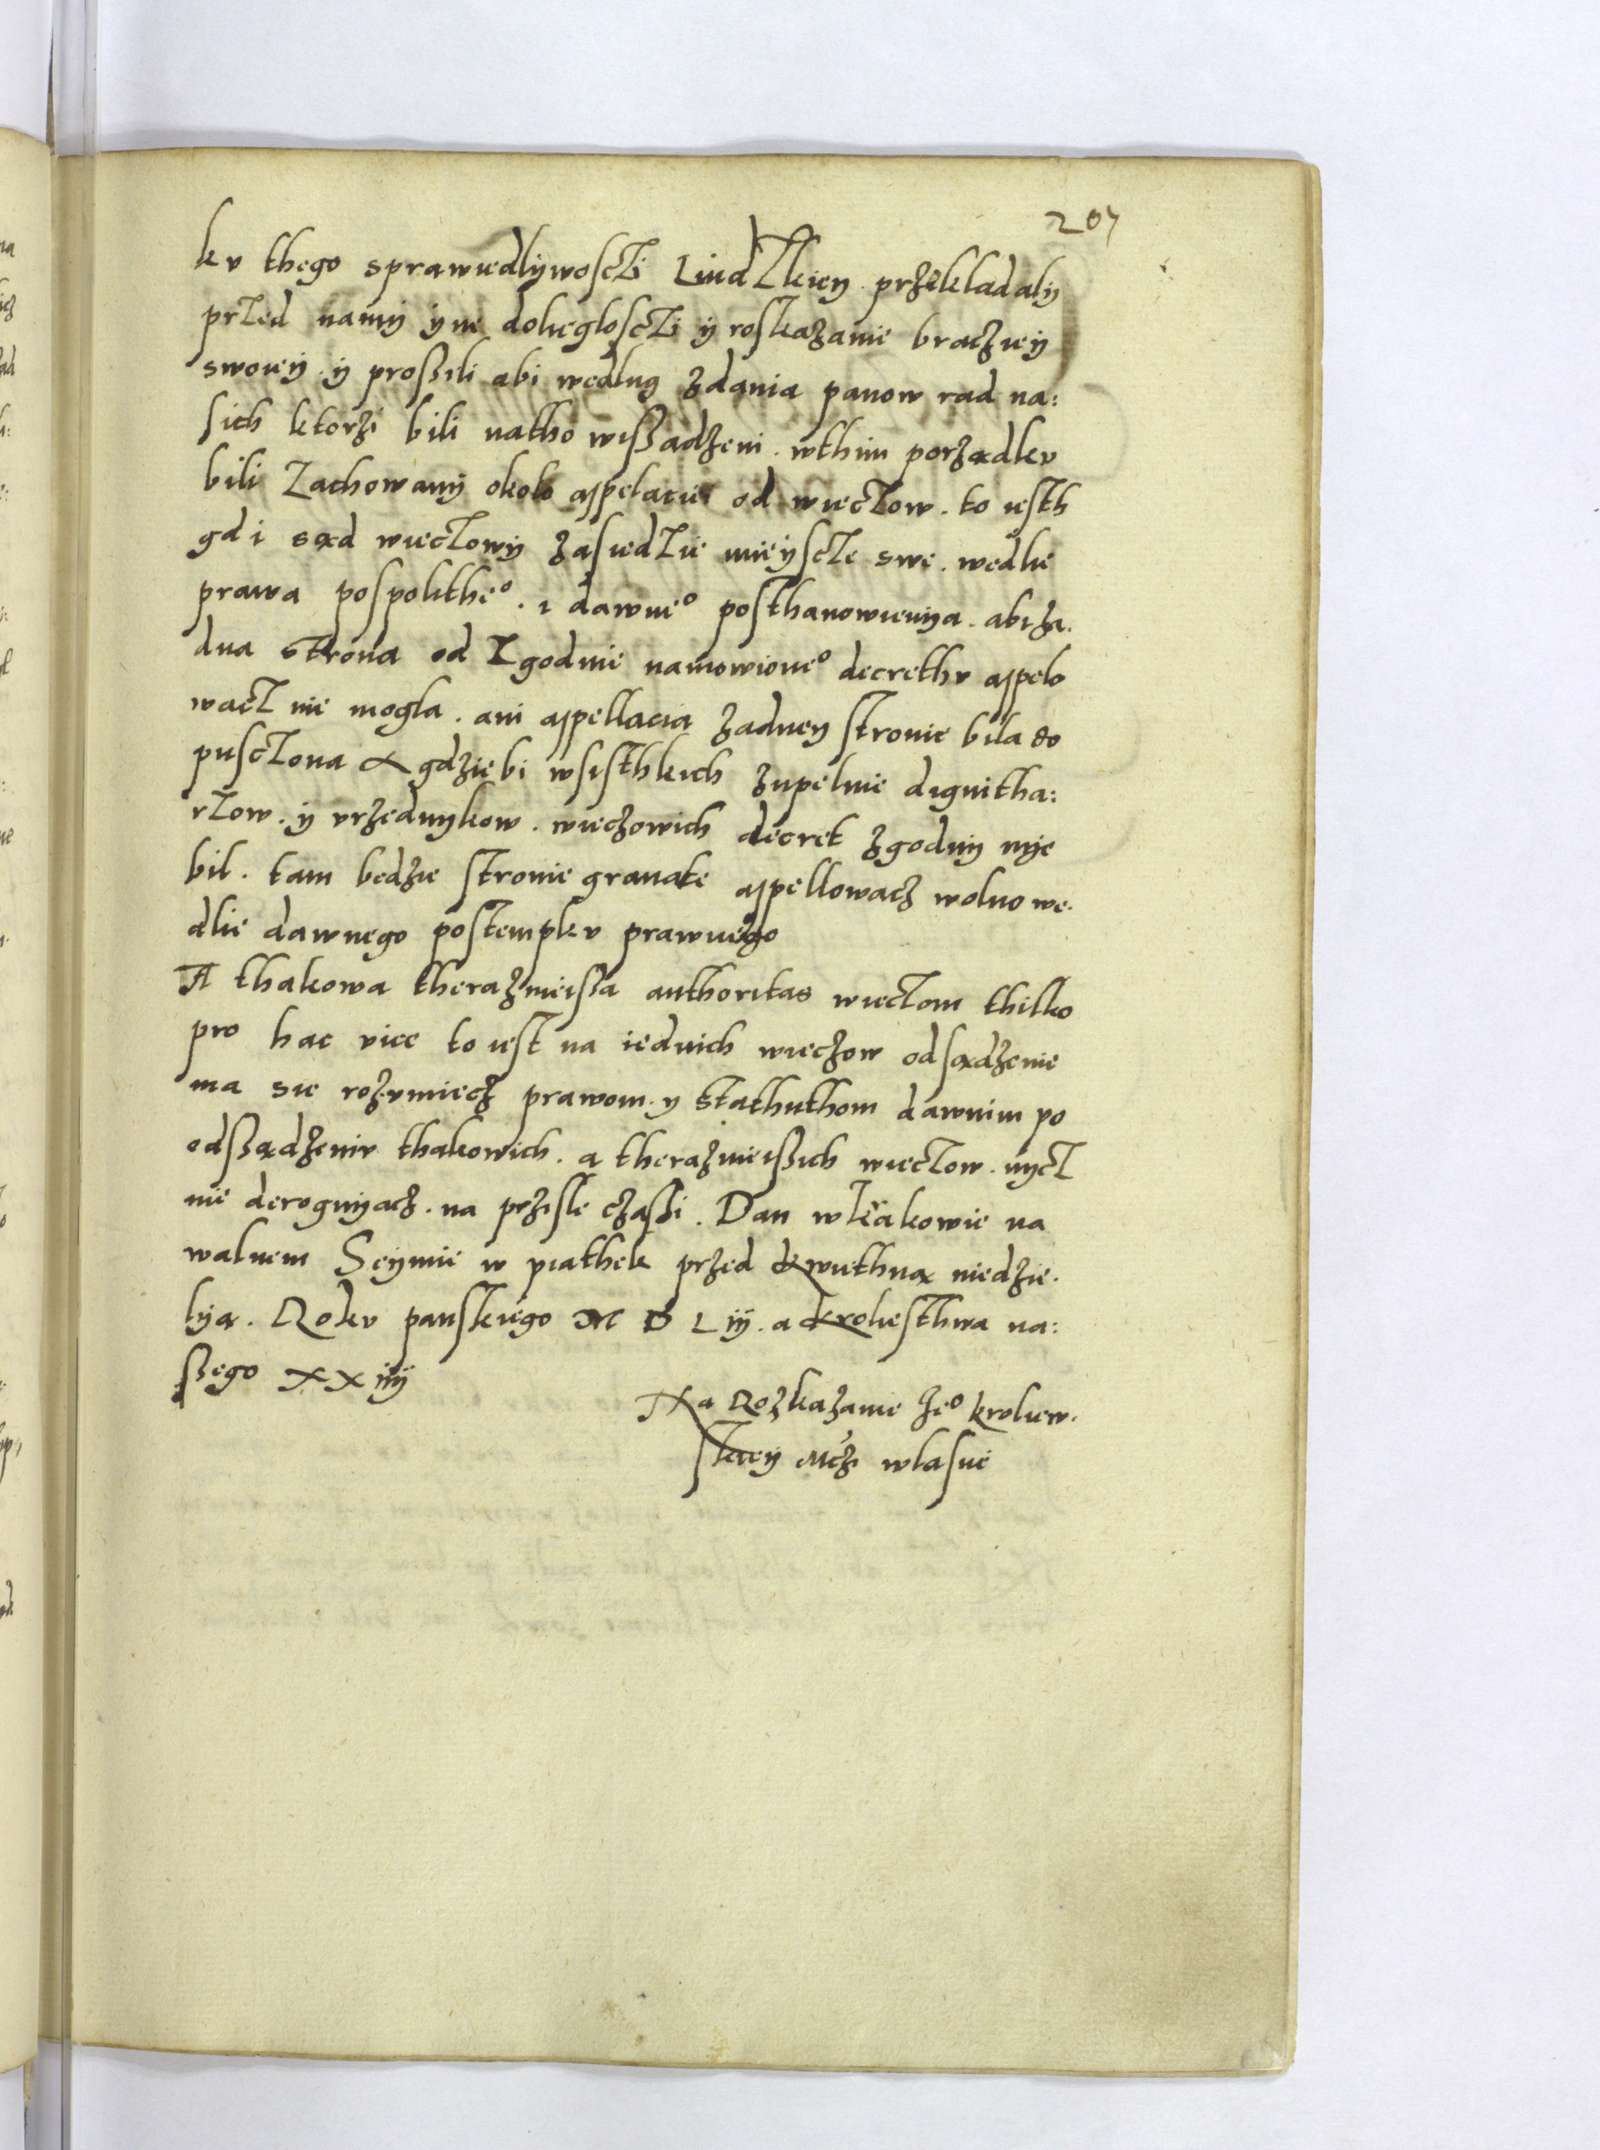 207
kv thego sprawiedlywosczi Liudzkiey przekladaly
przed namy yne dolieglosczi ÿ roskazanie braczieÿ
swoieÿ. ÿ prosßili abi wedlug zdania panow rad na:
sich ktorzi bili natho wißadzeni. wthim porządkv
bili zachowanÿ okolo appelaciei od wieczow. to iesth
gdi sąd wieczowÿ zasiedzie mieÿscze swe. wedlie
prawa pospolithe°. i dawne° posthanowienya. abi za.
dna strona od zgodnie namowione° decrethv appelo
wacz nie mogla. ani appellacia zadney stronie bila do
pusczona A gdziebi wsisthkich zupelnie dignitha:
rzow. ÿ vrzednykow. wieczowich decret zgodny nye
bil. tam bedzie stronie granate appellowacz wolno we.
dlie dawnego postempkv prawnego
A thakowa therazmieissa authoritas wieczom thilko
pro hac vice to iest na iednich wieczow odsądzenie
ma sie rozvmiecz prawom. y stathuthom dawnim po
odssądzeniv thakowich. a theraznieissich wieczow. nycz
nie derogvyącz. na przisle czassi. Dan w Krakowie na
walnem Seÿmie w piathek przed Kwiethną niedzie.
lyą. Rokv panskiego M D Lij. a kroliesthwa na:
ssego XXiij
Na Rozkazanie Je° kroliew.
skieÿ Mcz wlasne